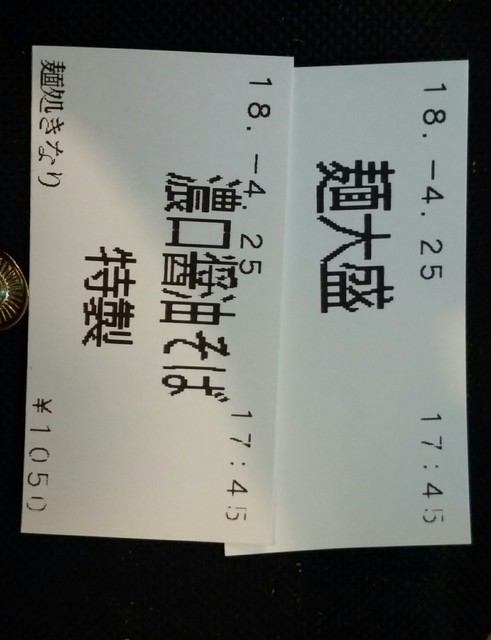 18.-4.25 17:45
濃口醤油そば
特製
麺処きなり ¥1050
18.-4.25 17:45
麺大盛